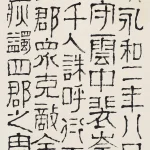 永和二年八月
守雲中裴岑
千人誅呼衍
郡眾克敵全
疢蠲四郡之害